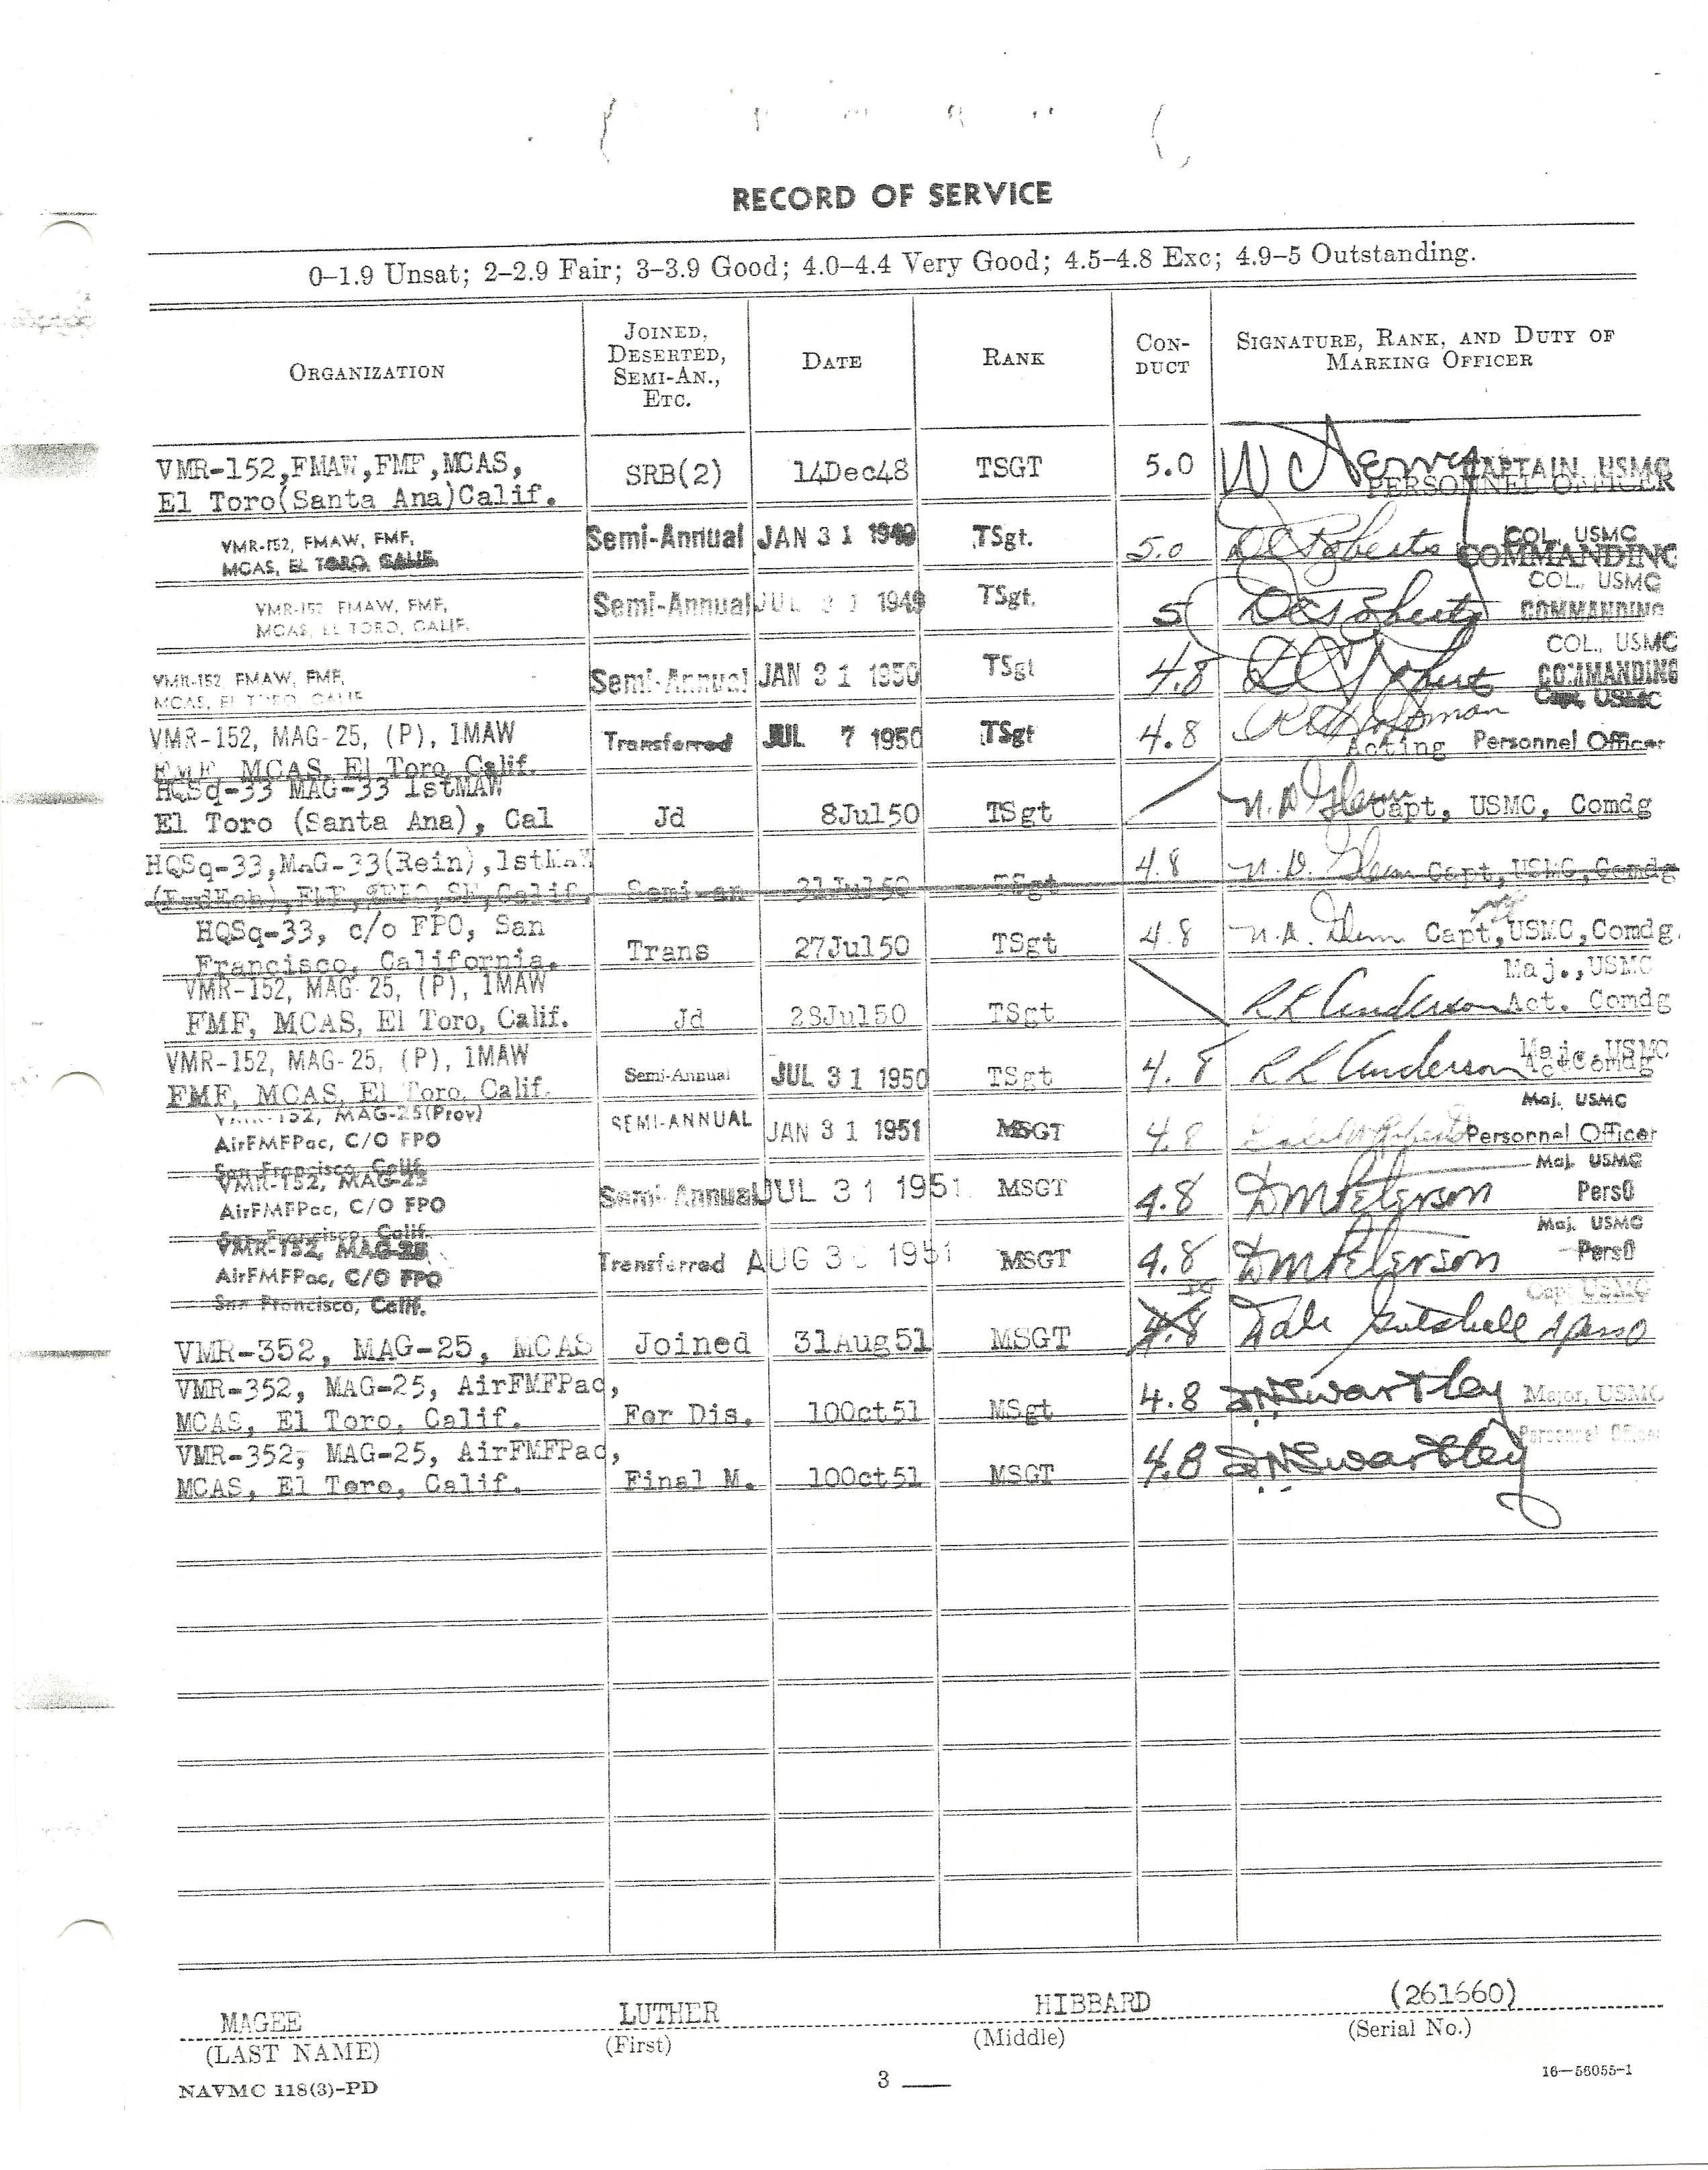 RECORD OF SERVICE
0–1.9 Unsat; 2–2.9 Fair; 3–3.9 Good; 4.0–4.4 Very Good; 4.5–4.8 Exc; 4.9–5 Outstanding.
ORGANIZATION
JOINED,
DESERTED,
SEMI-AN.,
ETC.
DATE
RANK
CON-
DUCT
SIGNATURE, RANK, AND DUTY OF
MARKING OFFICER
VMR-152,FMAW,FMF,MCAS,
El Toro(Santa Ana)Calif.
SRB(2)
14Dec48
TSGT
5.0
CAPTAIN, USMC
PERSONNEL OFFICER
VMR-152, FMAW, FMF,
MCAS, EL TORO, CALIF.
Semi-Annual
JAN 31 1949
TSgt.
5.0
COL., USMC
COMMANDING
VMR-152 FMAW, FMF,
MCAS, EL TORO, CALIF.
Semi-Annual
JUL 31 1949
TSgt.
5
COL., USMC
COMMANDING
VMR-152 FMAW, FMF,
MCAS, EL TORO CALIF
Semi-Annual
JAN 31 1950
TSgt
4.8
COL., USMC
COMMANDING
VMR-152, MAG-25, (P), 1MAW
FMF, MCAS, El Toro, Calif.
Transferred
JUL 7 1950
TSgt
4.8
Capt, USMC
Acting Personnel Officer
HQSq-33 MAG-33 1stMAW
El Toro (Santa Ana), Cal
Jd
8Jul50
TSgt
Capt, USMC, Comdg
HQSq-33,MAG-33(Rein),1stMAW
Semi-an
31Jul50
TSgt
4.8
Capt,USMC,Comdg
HQSq-33, c/o FPO, San
Francisco, California.
Trans
27Jul50
TSgt
4.8
Capt,USMC,Comdg.
VMR-152, MAG-25, (P), 1MAW
FMF, MCAS, El Toro, Calif.
Jd
28Jul50
TSgt
Maj.,USMC
R R Anderson Act. Comdg
VMR-152, MAG-25, (P), 1MAW
FMF, MCAS, El Toro, Calif.
Semi-Annual
JUL 31 1950
TSgt
4.8
R R Anderson
Maj., USMC
Act Comdg
VMR-152, MAG-25(Prov)
AirFMFPac, C/O FPO
San Francisco, Calif.
SEMI-ANNUAL
JAN 31 1951
MSGT
4.8
Maj. USMC
Personnel Officer
VMR-152, MAG-25
AirFMFPac, C/O FPO
San Francisco, Calif.
Semi-Annual
JUL 31 1951
MSGT
4.8
DM Peterson
Maj. USMC
PersO
VMR-152, MAG-25
AirFMFPac, C/O FPO
San Francisco, Calif.
Transferred
AUG 30 1951
MSGT
4.8
DM Peterson
Maj. USMC
PersO
VMR-352, MAG-25, MCAS
Joined
31Aug51
MSGT
4.8
Capt USMC
VMR-352, MAG-25, AirFMFPac,
MCAS, El Toro, Calif.
For Dis.
10Oct51
MSgt
4.8
Swartley
Major, USMC
Personnel Officer
VMR-352, MAG-25, AirFMFPac,
MCAS, El Toro, Calif.
Final M.
10Oct51
MSGT
4.8
Swartley
MAGEE LUTHER HIBBARD (261660)
(LAST NAME) (First) (Middle) (Serial No.)
NAVMC 118(3)-PD
3
16—56055-1